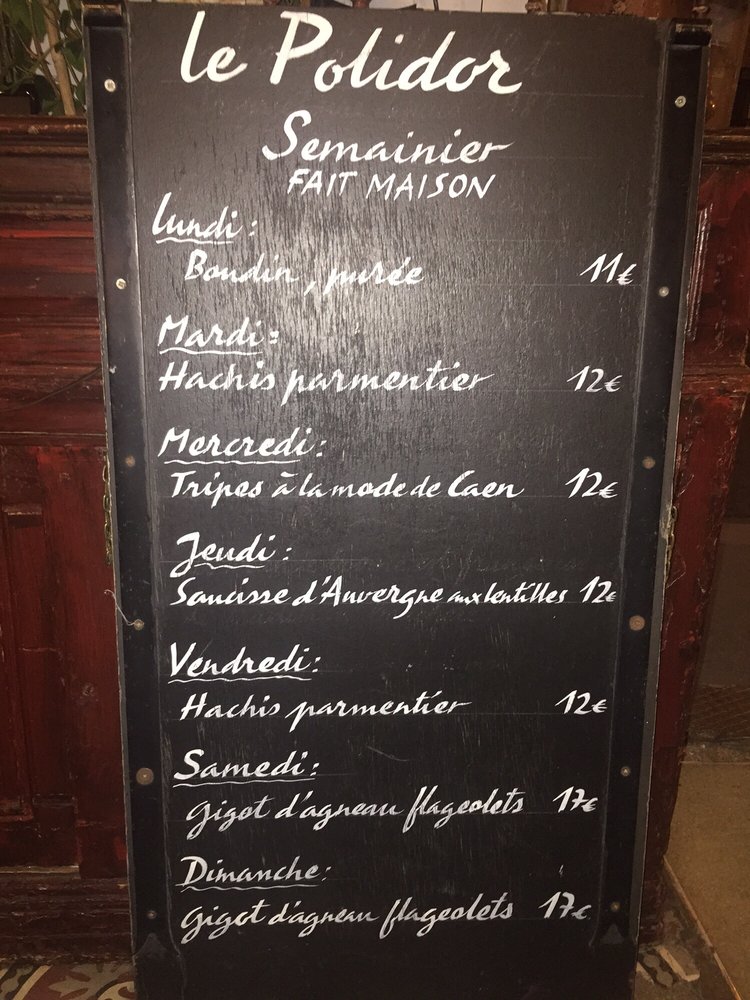 le Polidor
Semainier
FAIT MAISON
Lundi :
Boudin, purée 11€
Mardi :
Hachis parmentier 12€
Mercredi :
Tripes à la mode de Caen 12€
Jeudi :
Saucisse d'Auvergne aux lentilles 12€
Vendredi :
Hachis parmentier 12€
Samedi :
Gigot d'agneau flageolets 17€
Dimanche :
Gigot d'agneau flageolets 17€